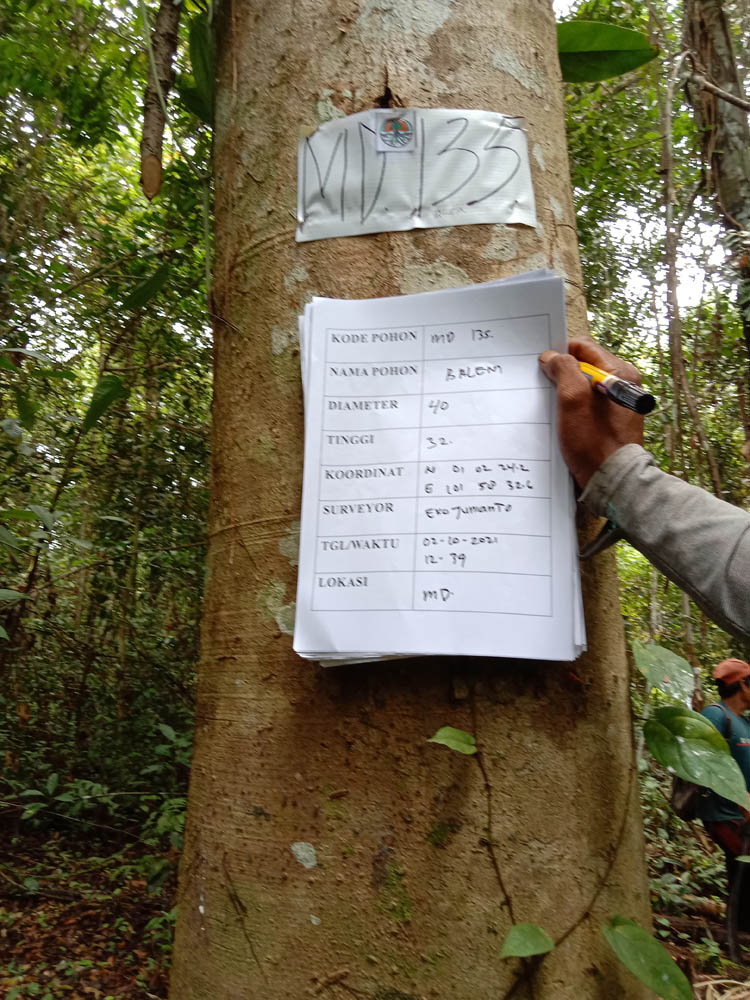 MD.135.
KODE POHON MD 135.
NAMA POHON BALEM
DIAMETER 40
TINGGI 32.
KOORDINAT N 01 02 24.2
E 101 58 32.6
SURVEYOR Eko Jumanto
TGL/WAKTU 02-10-2021
12-39
LOKASI MD.